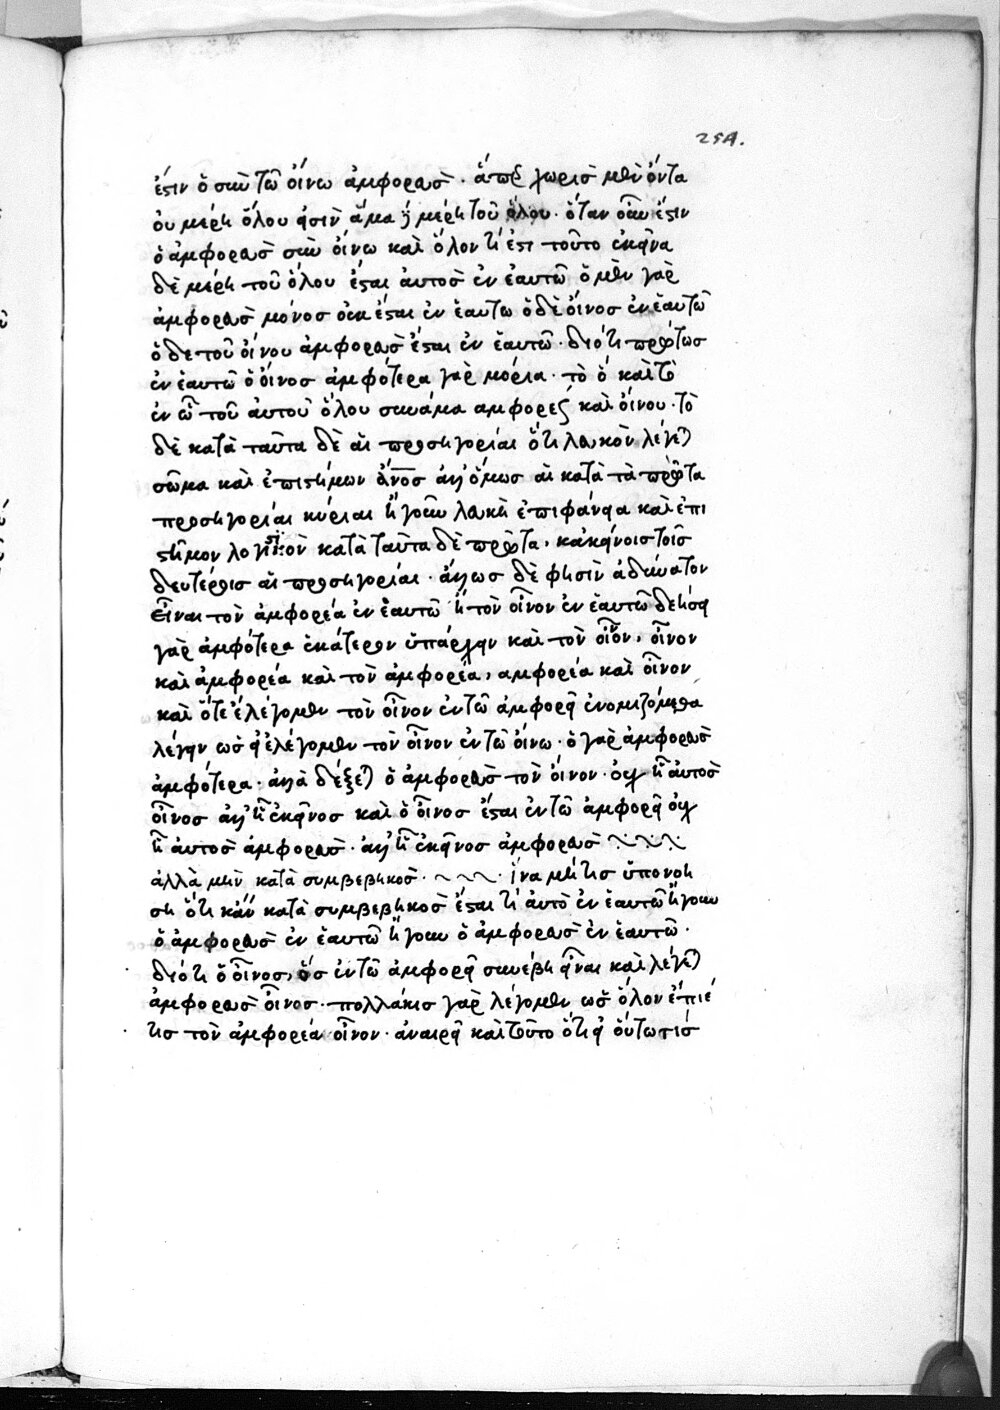 254.
ἐστιν ὁ σὺν τῶ οἴνω ἀμφορεὺς · ἅπερ χωρὶς μὲν ὄντα
οὐ μέρη ὅλου εἰσὶν ἅμα μέρη τοῦ ὅλου · ὅταν οὖν ἐστιν
ὁ ἀμφορεὺς σὺν οἴνω καὶ ὅλον τί ἐστι τοῦτο ἐκεῖνα
δὲ μέρη τοῦ ὅλου ἔσται ἀυτὸς ἐν ἑαυτῶ ὁ μὲν γὰρ
ἀμφορεὺς μόνος οὐκ ἔσται ἐν ἑαυτω ὁ δὲ οἶνος ἐν ἑαυτῶ
ὁ δε τοῦ οἴνου ἀμφορεὺς ἔσται ἐν ἑαυτῶ · διότι πρώτως
ἐν ἑαυτῶ ὁ οἶνος ἀμφότερα γὰρ μόρια · τὸ ὁ καὶ τὸ
ἐν ὧ τοῦ ἀυτοῦ ὅλου συνάμα αμφορέως καὶ οἴνου · τὸ
δὲ κατὰ ταῦτα δὲ αἱ προσηγορίαι ὅτι λευκὸν λέγεται
σῶμα καὶ ἐπιστήμων ἄνος ἀλλ' ὅμως αἱ κατὰ τὰ πρῶτα
προσηγορίαι κύριαι ἤγουν λευκὴ ἐπιφάνεια καὶ ἐπι
στῆμον λογιστικὸν κατὰ ταῦτα δὲ πρῶτα, κἀκείνοις τοῖς
δευτέροις αἱ προσηγορίαι · ἄλλως δὲ φησὶν ἀδύνατον
εἶναι τὸν ἀμφορέα ἐν ἑαυτῶ ἢ τὸν οἶνον ἐν ἑαυτῶ δεήσει
γὰρ ἀμφότερα ἑκάτερον ὑπάρχειν καὶ τὸν οἶνον, οἶνον
καὶ ἀμφορέα καὶ τὸν ἀμφορέα, αμφορέα καὶ οἶνον
καὶ ὅτε ἐλέγομεν τὸν οἶνον ἐν τῶ ἀμφορεῖ ἐνομιζόμεθα
λέγειν ὡς εἰ ἐλέγομεν τὸν οἶνον ἐν τῶ οἴνω · ὁ γὰρ ἀμφορεὺς
ἀμφότερα · ἀλλὰ δέξεται ὁ ἀμφορεὺς τὸν οἶνον · οὐχ ἧ ἀυτὸς
οἶνος ἀλλ' ἧ ἐκεῖνος καὶ ὁ οἶνος ἔσται ἐν τῶ ἀμφορεῖ οὐχ
ἧ ἀυτὸς ἀμφορεὺς · ἀλλ' ἧ ἐκεῖνος ἀμφορεὺς
ἀλλὰ μὴν κατὰ συμβεβηκὸς · ἵνα μήτις ὑπονοή
ση ὅτι κἂν κατὰ συμβεβηκὸς ἔσται τὶ ἀυτὸ ἐν ἑαυτῶ ἤγουν
ὁ ἀμφορεὺς ἐν ἑαυτῶ ἤγουν ὁ ἀμφορεὺς ἐν ἑαυτῶ ·
διότι ὁ οἶνος, ὃς ἐν τῶ ἀμφορεῖ συνέβη εἶναι καὶ λέγεται
ἀμφορεὺς οἶνος · πολλάκις γὰρ λέγομεν ὡς ὅλον ἔπιέ
τις τὸν ἀμφορέα οἶνον · ἀναιρεῖ καὶ τοῦτο ὅτι εἰ οὕτω τίς